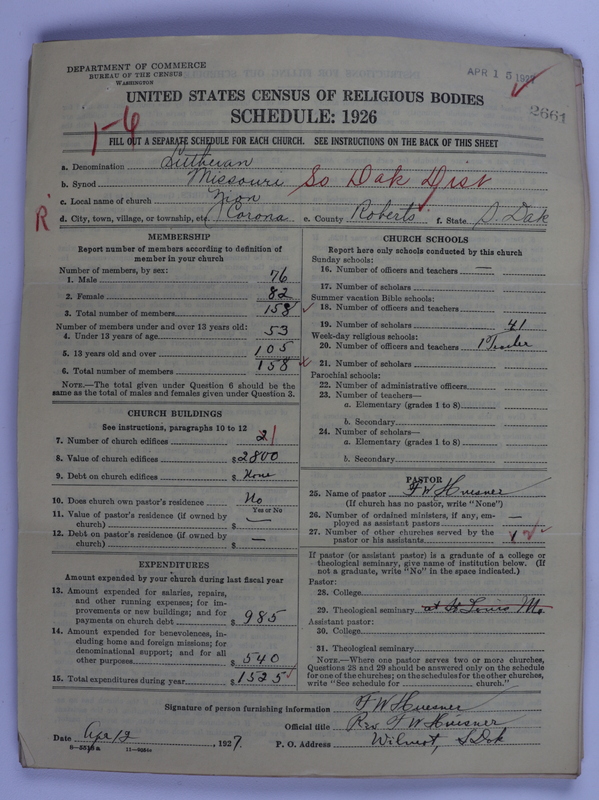 DEPARTMENT OF COMMERCE
BUREAU OF THE CENSUS
WASHINGTON
APR 15 1927
UNITED STATES CENSUS OF RELIGIOUS BODIES
SCHEDULE: 1926
2661
1-6
FILL OUT A SEPARATE SCHEDULE FOR EACH CHURCH. SEE INSTRUCTIONS ON THE BACK OF THIS SHEET
a. Denomination Lutheran
b. Synod Missouri So Dak Dist
c. Local name of church Zion
d. City, town, village, or township, etc. Corona e. County Roberts f. State S. Dak
R
MEMBERSHIP
Report number of members according to definition of member in your church
Number of members, by sex:
1. Male 76
2. Female 82
3. Total number of members 158
Number of members under and over 13 years old:
4. Under 13 years of age 53
5. 13 years old and over 105
6. Total number of members 158
NOTE.—The total given under Question 6 should be the same as the total of males and females given under Question 3.
CHURCH BUILDINGS
See instructions, paragraphs 10 to 12
7. Number of church edifices 2 1
8. Value of church edifices $ 2800
9. Debt on church edifices $ None
10. Does church own pastor's residence? No
Yes or No
11. Value of pastor's residence (if owned by church) $ —
12. Debt on pastor's residence (if owned by church) $ —
EXPENDITURES
Amount expended by your church during last fiscal year
13. Amount expended for salaries, repairs, and other running expenses; for improvements or new buildings; and for payments on church debt $ 985
14. Amount expended for benevolences, including home and foreign missions; for denominational support; and for all other purposes $ 540
15. Total expenditures during year $ 1525
CHURCH SCHOOLS
Report here only schools conducted by this church
Sunday schools:
16. Number of officers and teachers —
17. Number of scholars
Summer vacation Bible schools:
18. Number of officers and teachers
19. Number of scholars 41
Week-day religious schools:
20. Number of officers and teachers 1 Teacher
21. Number of scholars
Parochial schools:
22. Number of administrative officers
23. Number of teachers—
a. Elementary (grades 1 to 8)
b. Secondary
24. Number of scholars—
a. Elementary (grades 1 to 8)
b. Secondary
PASTOR
25. Name of pastor F W Huesner
(If church has no pastor, write "None")
26. Number of ordained ministers, if any, employed as assistant pastors —
27. Number of other churches served by the pastor or his assistants
If pastor (or assistant pastor) is a graduate of a college or theological seminary, give name of institution below. (If not a graduate, write "No" in the space indicated.)
Pastor:
28. College
29. Theological seminary at St Louis Mo
Assistant pastor:
30. College
31. Theological seminary
NOTE.—Where one pastor serves two or more churches, Questions 28 and 29 should be answered only on the schedule for one of the churches; on the schedules for the other churches, write "See schedule for church."
Signature of person furnishing information F W Huesner
Official title Rev F W Huesner
Date Apr 12, 1927. P. O. Address Wilmot, S Dak